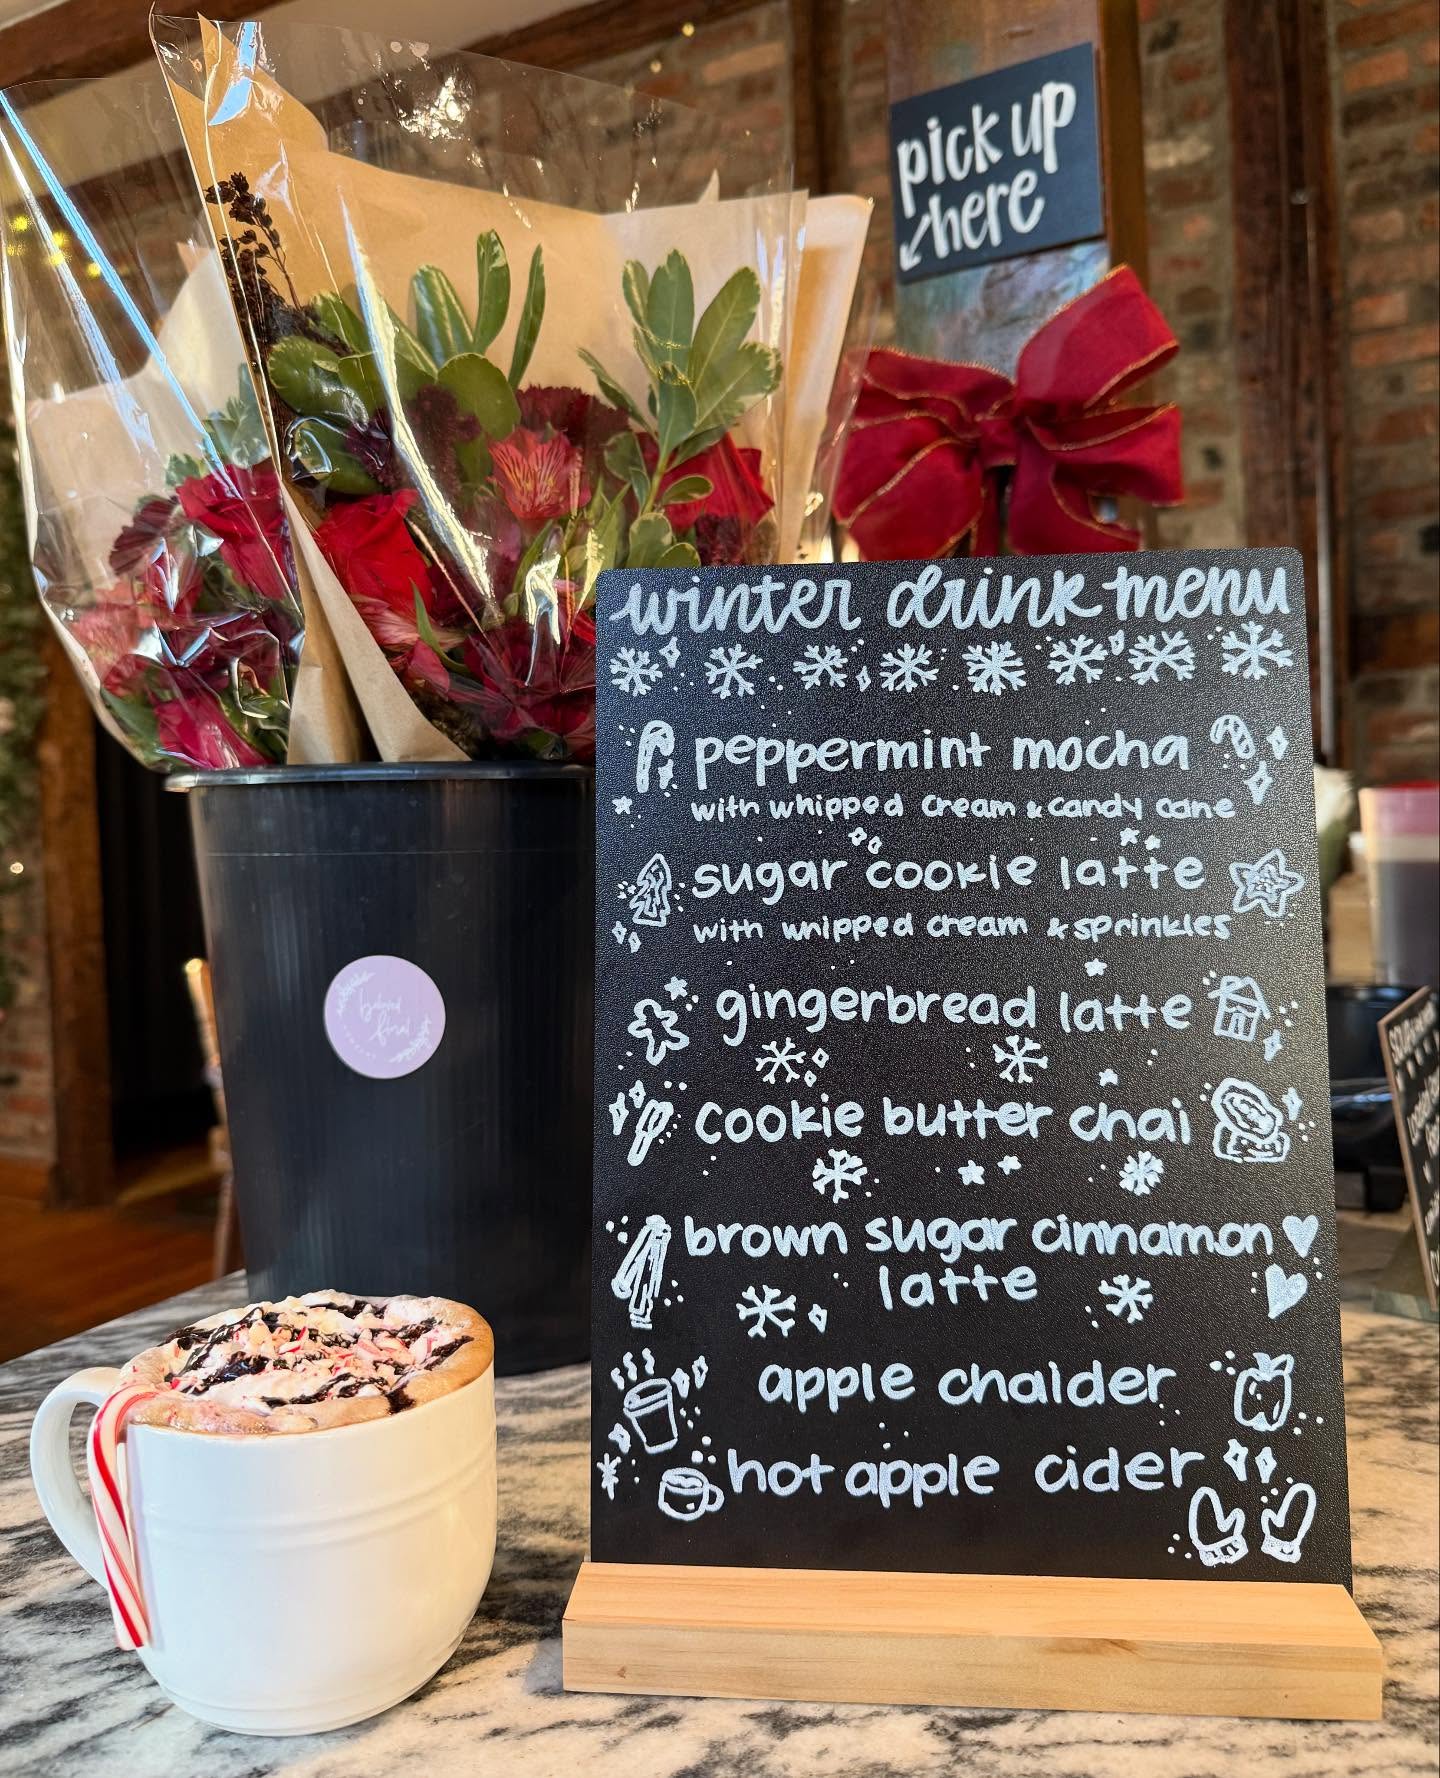 pick up
here
winter drink menu
peppermint mocha
with whipped cream & candy cane
sugar cookie latte
with whipped cream & sprinkles
gingerbread latte
cookie butter chai
brown sugar cinnamon
latte
apple chaider
hot apple cider
floral